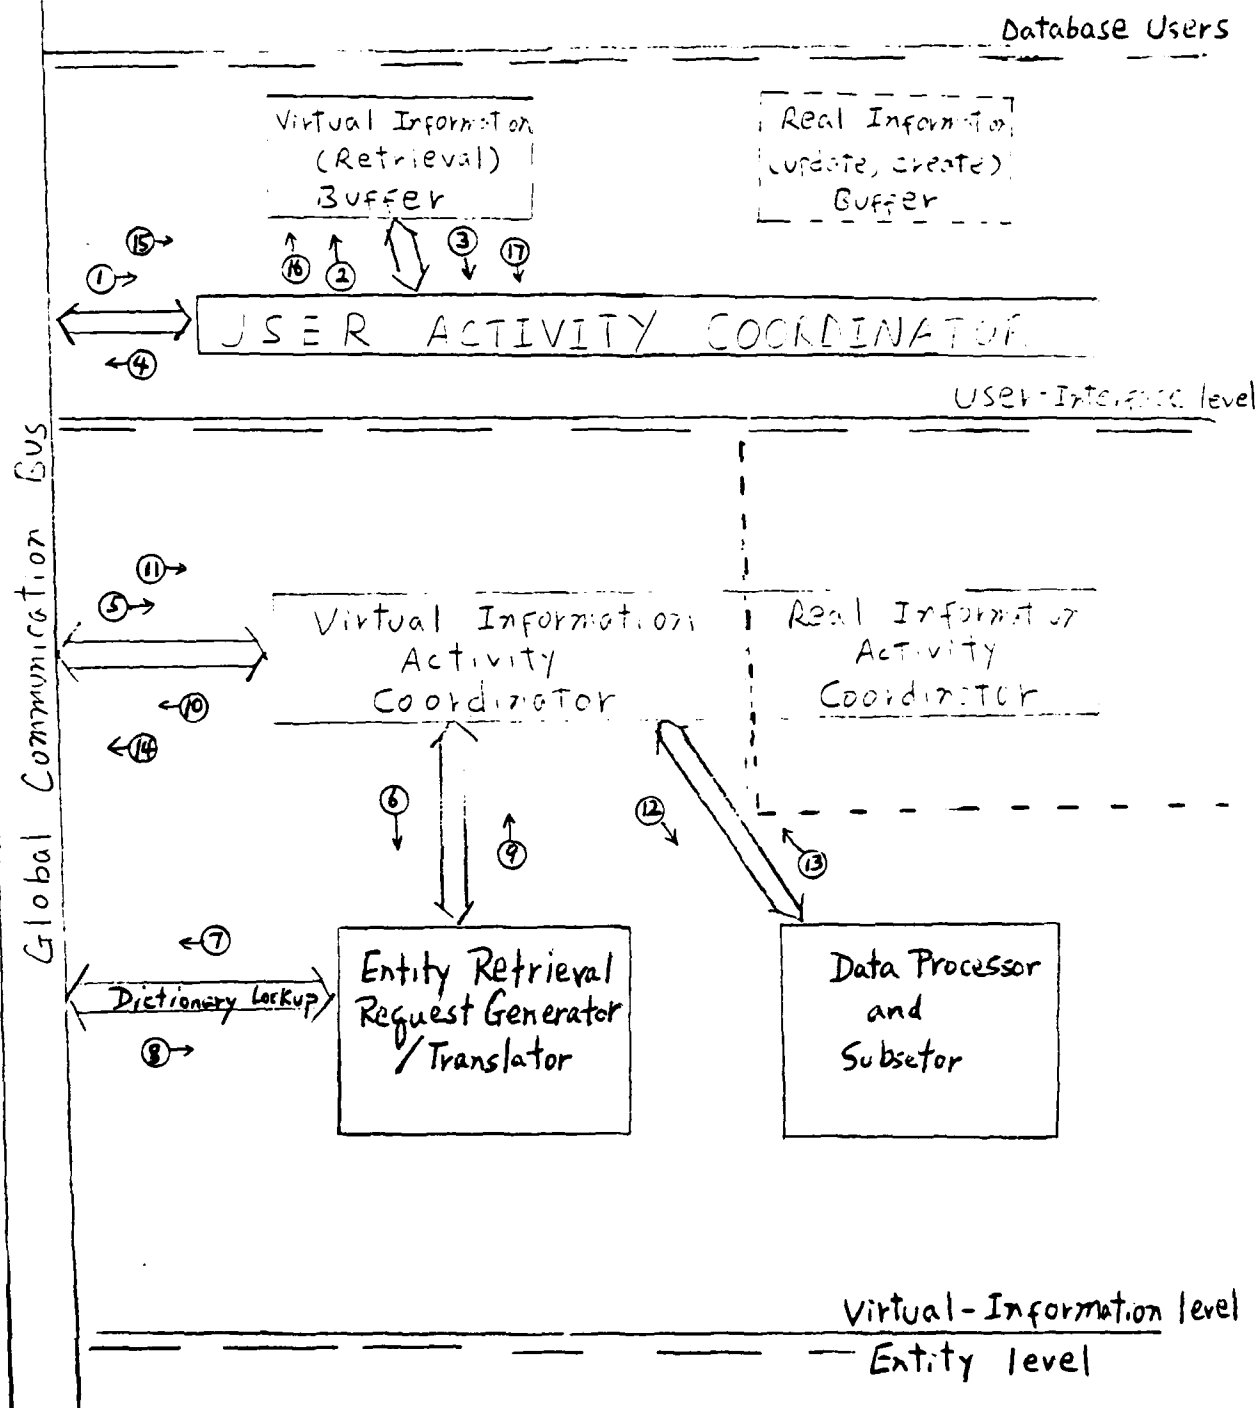 Database Users
Virtual Information
(Retrieval)
Buffer
Real Information
(update, create)
Buffer
15
1
16
2
3
17
USER ACTIVITY COORDINATOR
4
User-Interface level
Global Communication Bus
11
5
Virtual Information
Activity
Coordinator
Real Information
Activity
Coordinator
10
14
6
9
12
13
7
Dictionary Lockup
8
Entity Retrieval
Request Generator
/Translator
Data Processor
and
Subsetor
Virtual-Information level
Entity level